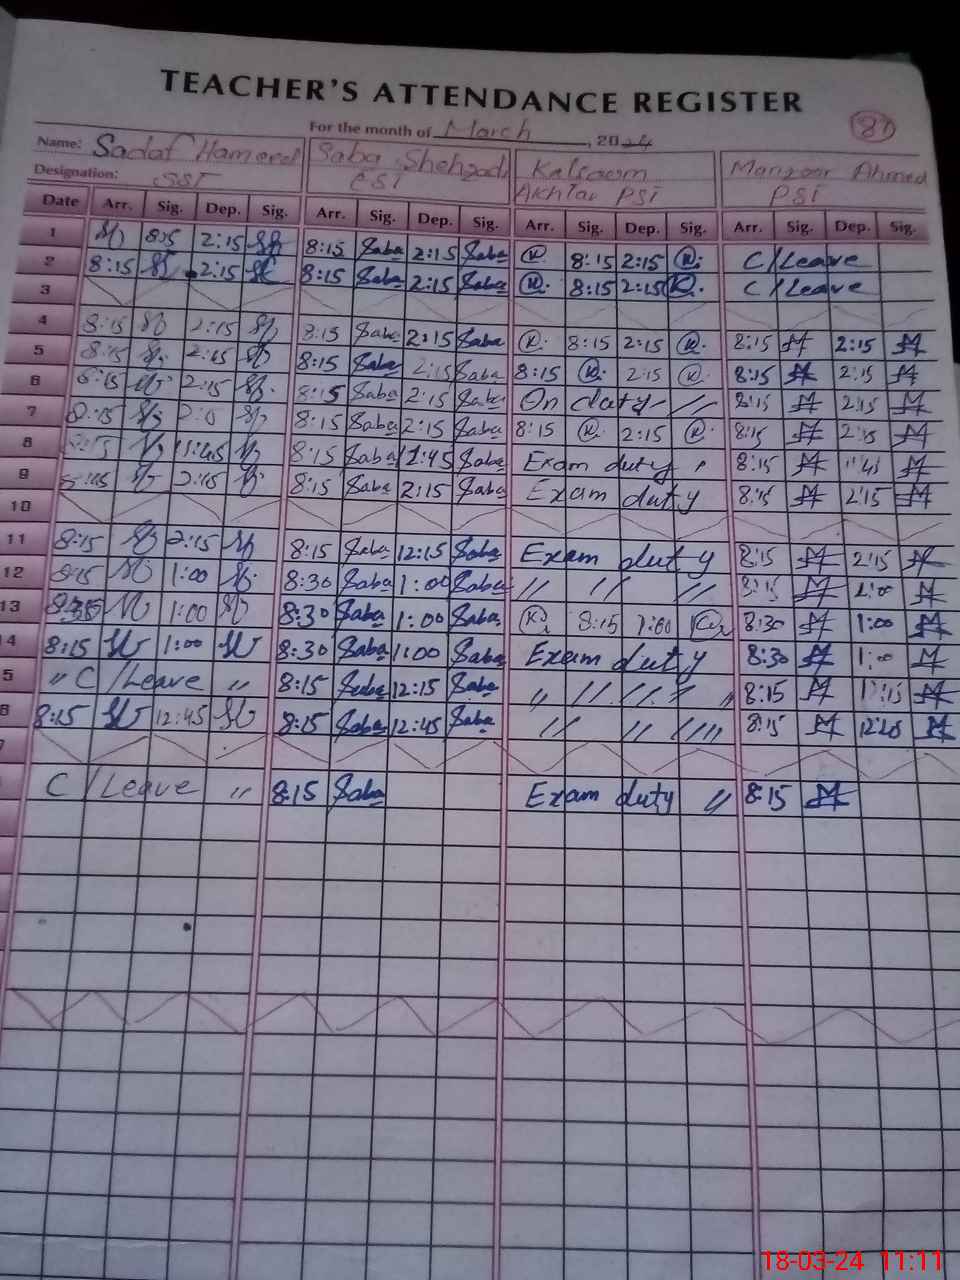 TEACHER'S ATTENDANCE REGISTER
For the month of March, 2024
87
Name: Sadaf Hameed Saba Shehzadi Kalsoom Manzoor Ahmed
Designation: SST EST Akhtar PST PST
Date Arr. Sig. Dep. Sig. Arr. Sig. Dep. Sig. Arr. Sig. Dep. Sig. Arr. Sig. Dep. Sig.
1 8:15 2:15 8:15 Saba 2:15 Saba K 8:15 2:15 K C/Leave
2 8:15 2:15 8:15 Saba 2:15 Saba K 8:15 2:15 K C/Leave
3
4 8:15 2:15 8:15 Saba 2:15 Saba K 8:15 2:15 K 8:15 M 2:15 M
5 8:15 2:15 8:15 Saba 2:15 Saba 8:15 K 2:15 K 8:15 M 2:15 M
6 8:15 2:15 8:15 Saba 2:15 Saba On duty // 8:15 M 2:15 M
7 8:15 8:15 Saba 2:15 Saba 8:15 K 2:15 K 8:15 M 2:15 M
8 8:15 11:45 8:15 Saba Saba Exam duty 8:15 M 11:45 M
9 8:15 2:15 8:15 Saba 2:15 Saba Exam duty 8:15 M 2:15 M
10
11 8:15 2:15 8:15 Saba 12:15 Saba Exam duty 8:15 M 2:15 M
12 8:15 1:00 8:30 Saba 1:00 Saba // // // 8:15 M 1:00 M
13 1:00 8:30 Saba 1:00 Saba K 8:15 1:00 K 8:30 M 1:00 M
14 8:15 1:00 8:30 Saba 1:00 Saba Exam duty 8:30 M 1:00 M
5 " C/Leave " 8:15 Saba 12:15 Saba // // // // 8:15 M 12:15 M
6 8:15 12:45 8:15 Saba 12:45 Saba // // // // 8:15 M M
C/Leave " 8:15 Saba Exam duty // 8:15 M
18-03-24 11:11